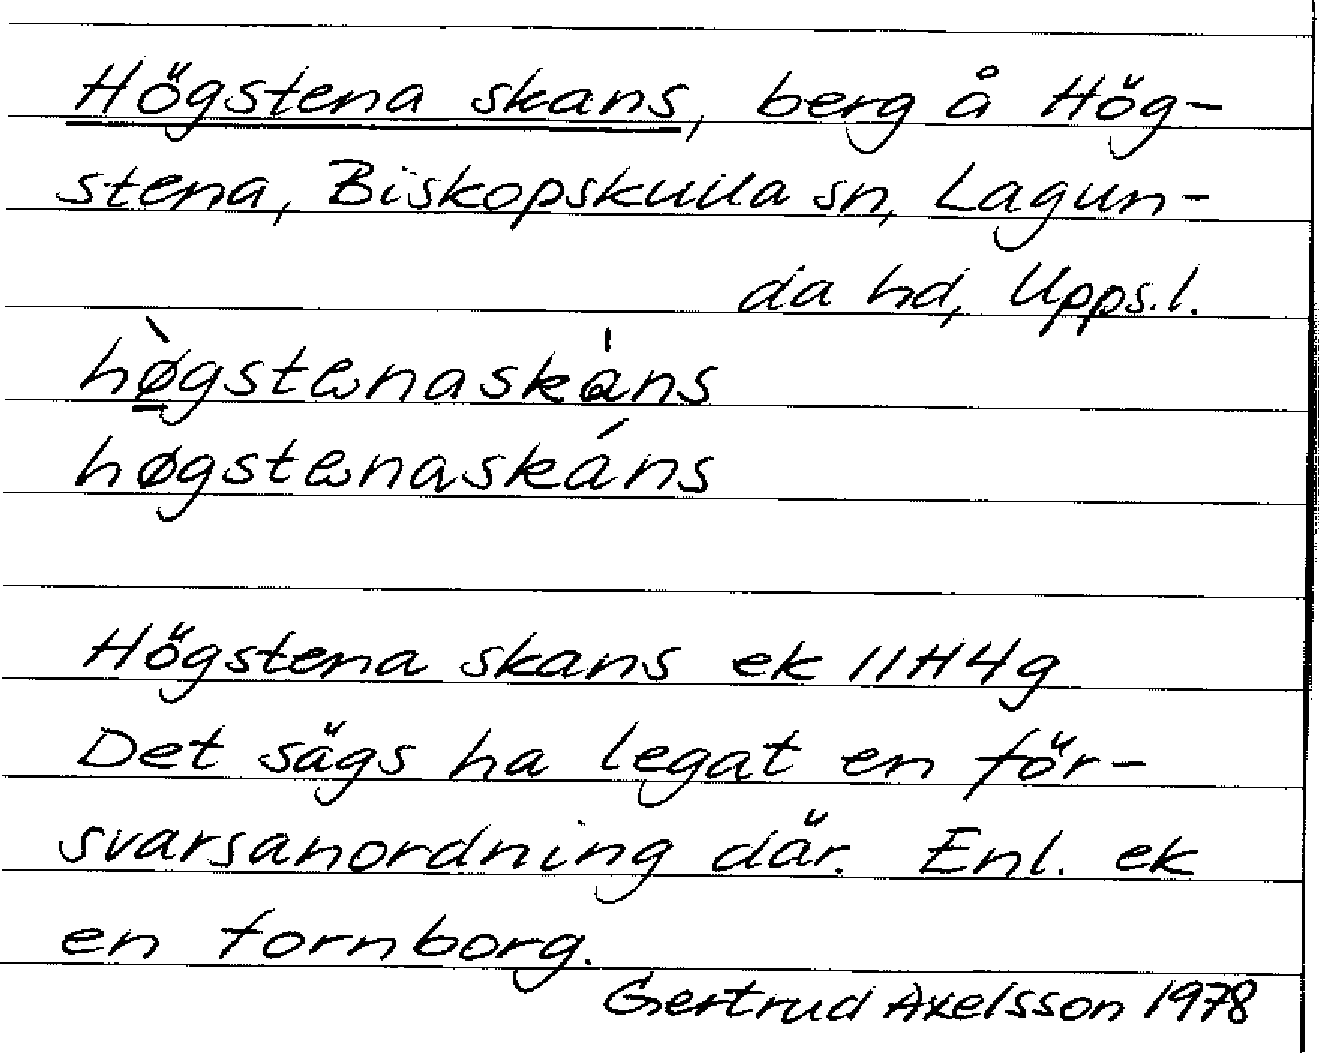 Högstena skans, berg å Hög-
stena, Biskopskulla sn, Lagun-
da hd, Upps.l.
hø̀gstenaskàns
høgstenaskáns
Högstena skans ek 11H4g
Det sägs ha legat en för-
svarsanordning där. Enl. ek
en fornborg.
Gertrud Axelsson 1978